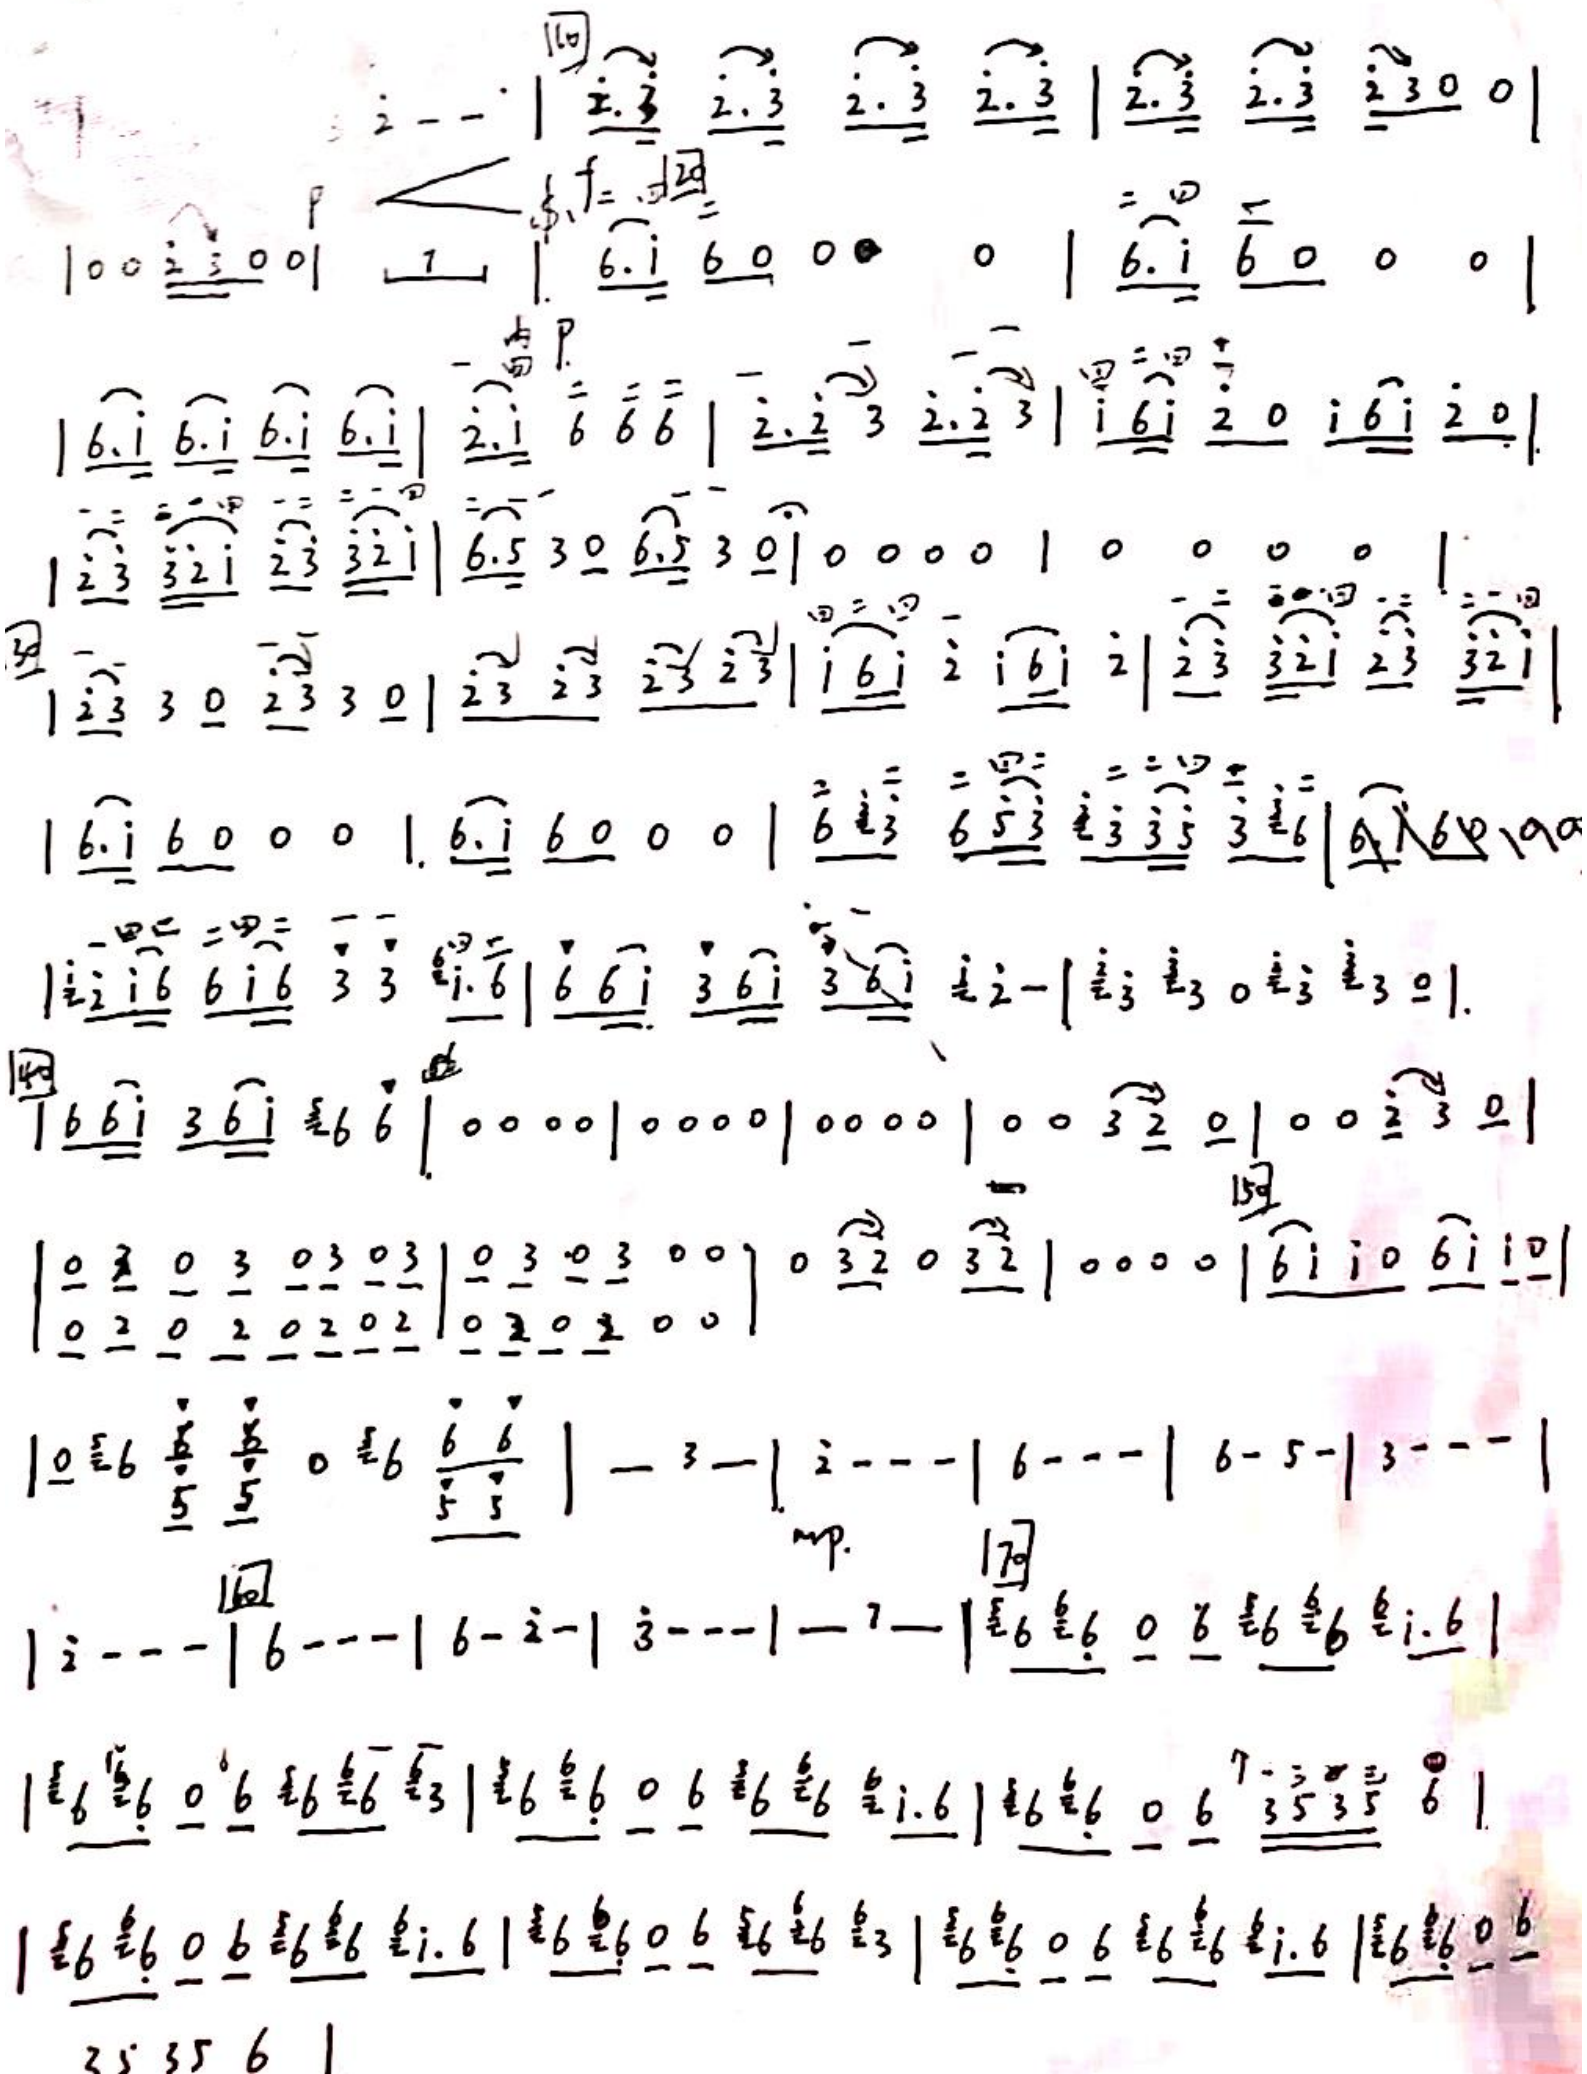 110
i̇ - - - | 2̇.3̇ 2̇.3̇ 2̇.3̇ 2̇.3̇ | 2̇.3̇ 2̇.3̇ 2̇ 3 0 0 |
p f 120
| 0 0 2̇ 3̇ 0 0 | 1 | 6.i 6 0 0 0 0 | 6.i 6 0 0 0 |
内 P.
| 6.i 6.i 6.i 6.i | 2̇.i 6 6 6 | 2̇.2̇ 3 2̇.2̇ 3 | i 6 i 2̇ 0 i 6 i 2̇ 0 |
| 2̇ 3̇ 3̇ 2̇ i 2̇ 3̇ 3̇ 2̇ i | 6.5 3 0 6.5 3 0 | 0 0 0 0 | 0 0 0 0 |
130
| 2̇ 3̇ 3 0 2̇ 3 3 0 | 2̇ 3 2̇ 3 2̇ 3 2̇ 3 | i 6 i 2̇ i 6 i 2̇ | 2̇ 3̇ 3̇ 2̇ i 2̇ 3̇ 3̇ 2̇ i |
| 6.i 6 0 0 0 | 6.i 6 0 0 0 | 6 i̇ 3̇ 6 5̇ 3̇ 2̇ 3̇ 3̇ 5̇ 3̇ 2̇ 6 |
| 2̇ 2̇ i 6 6 i 6 3 3 6 i.6 | 6 6 i 3 6 i 3 6 i i̇ 2̇ - | 2̇ 3̇ 2̇ 3 0 2̇ 3 2̇ 3 0 |
140
| 6 6 i 3 6 i 5 6 6 | 0 0 0 0 | 0 0 0 0 | 0 0 0 0 | 0 0 3 2 0 | 0 0 2̇ 3 0 |
150
| 0 3 0 3 0 3 0 3 | 0 3 0 3 0 0 | 0 3 2 0 3 2 | 0 0 0 0 | 6 i i 0 6 i i 0 |
0 2 0 2 0 2 0 2 | 0 2 0 2 0 0
| 0 5 6 6 6 0 5 6 6 6 | — 3 — | 2̇ - - - | 6 - - - | 6 - 5 - | 3 - - - |
5 5 5 5
mp.
160 170
| 2̇ - - - | 6 - - - | 6 - 2̇ - | 3̇ - - - | — 7 — | 5 6 6 6 0 6 5 6 6 6 6 i.6 |
| 5 6 6 6 0 6 5 6 6 6 6 3 | 5 6 6 6 0 6 5 6 6 6 6 i.6 | 5 6 6 6 0 6 3 5 3 5 6 |
| 5 6 6 6 0 6 5 6 6 6 6 i.6 | 5 6 6 6 0 6 5 6 6 6 6 3 | 5 6 6 6 0 6 5 6 6 6 6 i.6 | 5 6 6 6 0 6
3 5 3 5 6 |